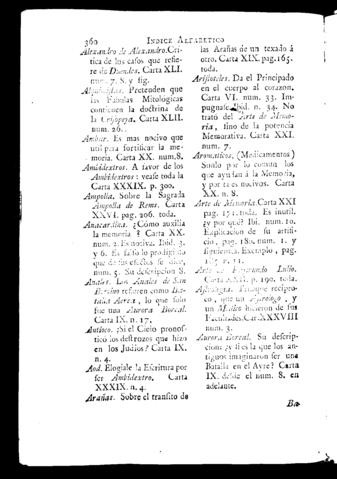 360 INDICE ALFABETICO
Alexandro de Alexandro. Crí-
tica de los casos que refie-
re de Duendes. Carta XLI.
num. 7. 8. y sig.
Pretenden que
las Fabulas Mitológicas
contienen la doctrina de
la Crysopeya. Carta XLII.
num. 26.
Ambar. Es mas nocivo que
util para fortificar la me-
moria. Carta XX. num. 8.
Ambidextros. A favor de los
Ambidextros: vease toda la
Carta XXXIX. p. 300.
Ampolla. Sobre la Sagrada
Ampolla de Rems. Carta
XXVI. pag. 206. toda.
Anacardina. ¿Cómo auxilia
la memoria? Carta XX.
num. 2. Es nociva. Ibid. 3.
y 6. Es falso lo prodigioso
que de sus efectos se dice,
num. 5. Su descripcion 8.
Anales. Los Anales de San
Bertino refieren como Ba-
talla Aerea, lo que solo
fue una Aurora Boreal.
Carta IX. n. 17.
¿Si el Cielo pronos-
ticó los destrozos que hizo
en los Judios? Carta IX.
n. 4.
Aod. Elogiale la Escritura por
ser Ambidextro. Carta
XXXIX. n. 4.
Arañas. Sobre el transito de
las Arañas de un texado á
otro. Carta XIX. pag. 165.
toda.
Aristoteles. Da el Principado
en el cuerpo al corazon.
Carta VI. num. 33. Im-
pugnase Ibid. n. 34. No
trató del Arte de Memo-
ria, sino de la potencia
Memorativa. Carta XXI.
num. 7.
Aromaticos. (Medicamentos)
Sonlo por lo comun los
que ayudan á la Memoria,
y por tales nocivos. Carta
XX. n. 8.
Arte de Memoria. Carta XXI
pag. 171. toda. Es inutil,
¿y por qué? Ibi. num. 10.
Explicacion de su artifi-
cio, pag. 180. num. 1. y
siguientes. Exemplo, pag.
Arte de Raymundo Lulio.
Carta XXII. p. 190. toda.
reciproco,
que un y
un Mulos hicieron de sus
Facultades. Car. XXXVIII
num. 3.
Aurora Boreal. Su descrip-
cion: ¿y si es la que los an-
tiguos imaginaron ser una
Batalla en el Ayre? Carta
IX. desde el num. 8. en
adelante.